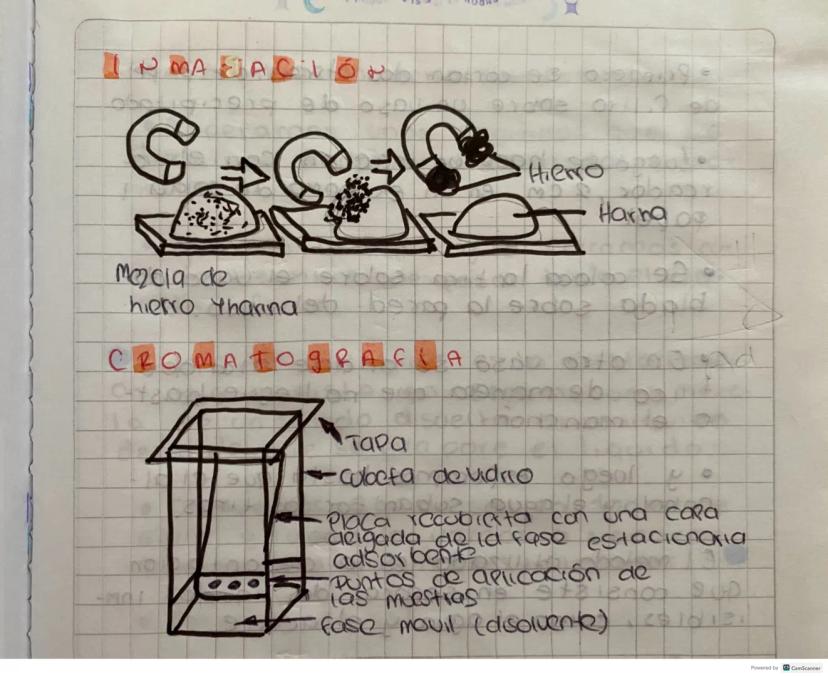 INMATACIÓN
Hierro
Harina
Mezcla de
hierro y harina
CROMATOGRAFIA
TAPA
cubeta de vidrio
Placa recubierta con una capa
delgada de la fase estacionaria
adsorbente
Puntos de aplicación de
las muestras
fase movil (disolvente)
Powered by CamScanner